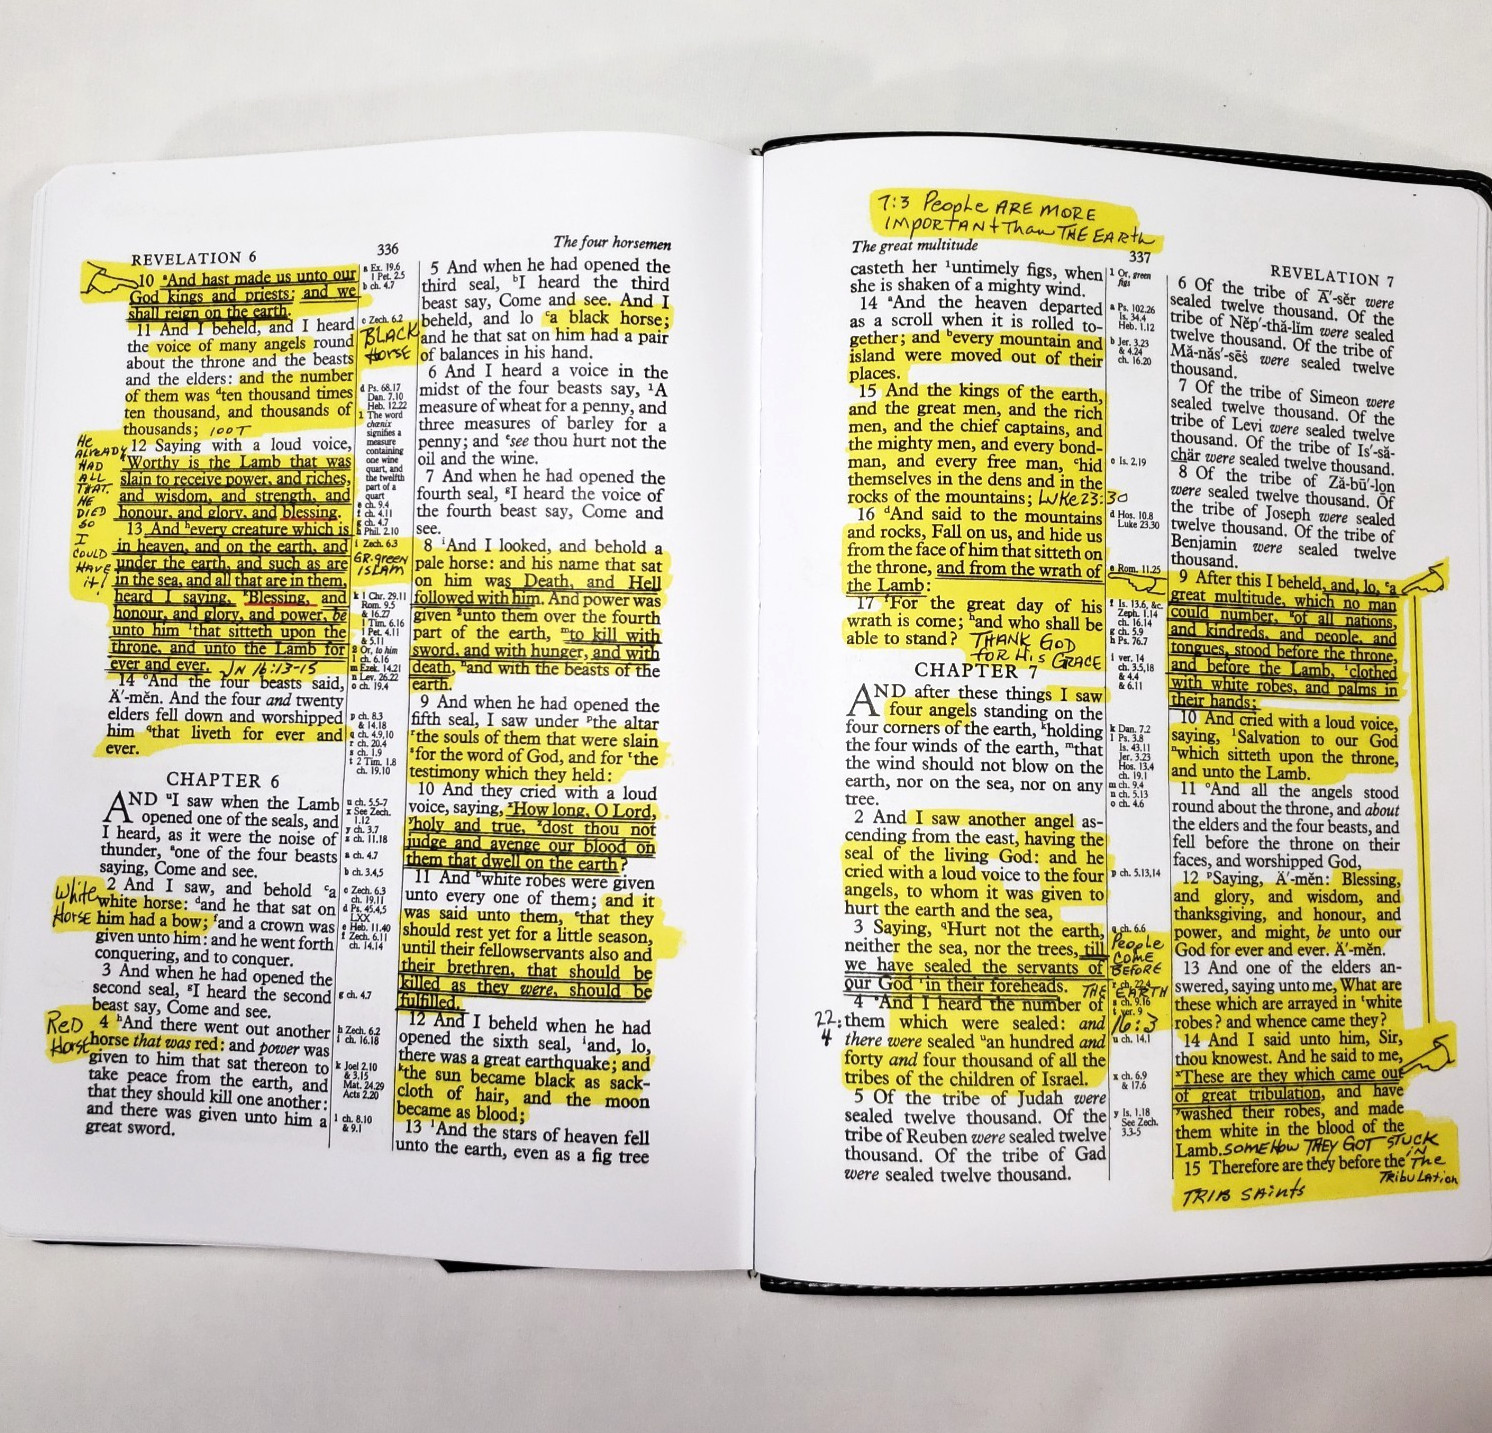 REVELATION 6
336
The four horsemen
10 ᵃAnd hast made us unto our
God kings and priests: and we
shall reign on the earth.
11 And I beheld, and I heard
the voice of many angels round
about the throne and the beasts
and the elders: and the number
of them was ᵈten thousand times
ten thousand, and thousands of
thousands; 100T
12 Saying with a loud voice,
Worthy is the Lamb that was
slain to receive power, and riches,
and wisdom, and strength, and
honour, and glory, and blessing.
13 And ʰevery creature which is
in heaven, and on the earth, and
under the earth, and such as are
in the sea, and all that are in them,
heard I saying, ᵏBlessing, and
honour, and glory, and power, be
unto him ˡthat sitteth upon the
throne, and unto the Lamb for
ever and ever. JN 16:13-15
14 ᵒAnd the four beasts said,
Ä′-mĕn. And the four and twenty
elders fell down and worshipped
him ᑫthat liveth for ever and
ever.
He
ALREADY
HAD
ALL
THAT.
HE
DIED
SO
I
COULD
HAVE
it!
CHAPTER 6
AND ᵘI saw when the Lamb
opened one of the seals, and
I heard, as it were the noise of
thunder, ᵃone of the four beasts
saying, Come and see.
2 And I saw, and behold ᶜa
white horse: ᵈand he that sat on
him had a bow; ᶠand a crown was
given unto him: and he went forth
conquering, and to conquer.
White
HORSE
3 And when he had opened the
second seal, ᵍI heard the second
beast say, Come and see.
4 ʰAnd there went out another
horse that was red: and power was
given to him that sat thereon to
take peace from the earth, and
that they should kill one another:
and there was given unto him a
great sword.
RED
Horse
a Ex. 19.6
1 Pet. 2.5
b ch. 4.7
c Zech. 6.2
BLACK
HORSE
d Ps. 68.17
Dan. 7.10
Heb. 12.22
1 The word
chœnix
signifies a
measure
containing
one wine
quart, and
the twelfth
part of a
quart
e ch. 9.4
f ch. 4.11
g ch. 4.7
h Phil. 2.10
i Zech. 6.3
GR.green
ISLAM
k 1 Chr. 29.11
Rom. 9.5
& 16.27
1 Tim. 6.16
1 Pet. 4.11
& 5.11
2 Or, to him
l ch. 6.16
m Ezek. 14.21
n Lev. 26.22
o ch. 19.4
p ch. 8.3
& 14.18
q ch. 4.9,10
r ch. 20.4
s ch. 1.9
t 2 Tim. 1.8
ch. 19.10
u ch. 5.5-7
x See Zech.
1.12
y ch. 3.7
z ch. 11.18
a ch. 4.7
b ch. 3.4,5
c Zech. 6.3
ch. 19.11
d Ps. 45.4,5
LXX
e Heb. 11.40
f Zech. 6.11
ch. 14.14
g ch. 4.7
h Zech. 6.2
i ch. 16.18
k Joel 2.10
& 3.15
Mat. 24.29
Acts 2.20
l ch. 8.10
& 9.1
5 And when he had opened the
third seal, ᵇI heard the third
beast say, Come and see. And I
beheld, and lo ᶜa black horse;
and he that sat on him had a pair
of balances in his hand.
6 And I heard a voice in the
midst of the four beasts say, ¹A
measure of wheat for a penny, and
three measures of barley for a
penny; and ᵉsee thou hurt not the
oil and the wine.
7 And when he had opened the
fourth seal, ᵍI heard the voice of
the fourth beast say, Come and
see.
8 ⁱAnd I looked, and behold a
pale horse: and his name that sat
on him was Death, and Hell
followed with him. And power was
given ²unto them over the fourth
part of the earth, ᵐto kill with
sword, and with hunger, and with
death, ⁿand with the beasts of the
earth.
9 And when he had opened the
fifth seal, I saw under ᵖthe altar
ʳthe souls of them that were slain
ˢfor the word of God, and for ᵗthe
testimony which they held:
10 And they cried with a loud
voice, saying, ˣHow long, O Lord,
ʸholy and true, ᶻdost thou not
judge and avenge our blood on
them that dwell on the earth?
11 And ᵇwhite robes were given
unto every one of them; and it
was said unto them, ᵉthat they
should rest yet for a little season,
until their fellowservants also and
their brethren, that should be
killed as they were, should be
fulfilled.
12 And I beheld when he had
opened the sixth seal, ⁱand, lo,
there was a great earthquake; and
ᵏthe sun became black as sack-
cloth of hair, and the moon
became as blood;
13 ˡAnd the stars of heaven fell
unto the earth, even as a fig tree
7:3 People ARE MORE
IMPORTANT Than THE EARTH
The great multitude
337
REVELATION 7
casteth her ¹untimely figs, when
she is shaken of a mighty wind.
14 ᵃAnd the heaven departed
as a scroll when it is rolled to-
gether; and ᵇevery mountain and
island were moved out of their
places.
15 And the kings of the earth,
and the great men, and the rich
men, and the chief captains, and
the mighty men, and every bond-
man, and every free man, ᶜhid
themselves in the dens and in the
rocks of the mountains; LUKE 23:30
16 ᵈAnd said to the mountains
and rocks, Fall on us, and hide us
from the face of him that sitteth on
the throne, and from the wrath of
the Lamb:
17 ᶠFor the great day of his
wrath is come; ʰand who shall be
able to stand? THANK GOD
FOR HIS GRACE
CHAPTER 7
AND after these things I saw
four angels standing on the
four corners of the earth, ᵏholding
the four winds of the earth, ᵐthat
the wind should not blow on the
earth, nor on the sea, nor on any
tree.
2 And I saw another angel as-
cending from the east, having the
seal of the living God: and he
cried with a loud voice to the four
angels, to whom it was given to
hurt the earth and the sea,
3 Saying, ᑫHurt not the earth,
neither the sea, nor the trees, till
we have sealed the servants of
our God ᵗin their foreheads.
4 ᵘAnd I heard the number of
them which were sealed: and
there were sealed ᵘan hundred and
forty and four thousand of all the
tribes of the children of Israel.
22:
4
5 Of the tribe of Judah were
sealed twelve thousand. Of the
tribe of Reuben were sealed twelve
thousand. Of the tribe of Gad
were sealed twelve thousand.
1 Or, green
figs
a Ps. 102.26
Is. 34.4
Heb. 1.12
b Jer. 3.23
& 4.24
ch. 16.20
c Is. 2.19
d Hos. 10.8
Luke 23.30
e Rom. 11.25
f Is. 13.6, &c.
Zeph. 1.14
ch. 16.14
g ch. 5.9
h Ps. 76.7
i ver. 14
ch. 3.5,18
& 4.4
& 6.11
k Dan. 7.2
l Ps. 3.8
Is. 43.11
Jer. 3.23
Hos. 13.4
ch. 19.1
m ch. 9.4
n ch. 5.13
o ch. 4.6
p ch. 5.13,14
q ch. 6.6
People
COME
BEFORE
THE EARTH
r ch. 22.4
s ch. 9.16
t ver. 9
16:3
u ch. 14.1
x ch. 6.9
& 17.6
y Is. 1.18
See Zech.
3.3-5
6 Of the tribe of Ä′-sĕr were
sealed twelve thousand. Of the
tribe of Nĕp′-thă-lĭm were sealed
twelve thousand. Of the tribe of
Mă-năs′-sēs were sealed twelve
thousand.
7 Of the tribe of Simeon were
sealed twelve thousand. Of the
tribe of Levi were sealed twelve
thousand. Of the tribe of Is′-să-
chär were sealed twelve thousand.
8 Of the tribe of Ză-bū′-lon
were sealed twelve thousand. Of
the tribe of Joseph were sealed
twelve thousand. Of the tribe of
Benjamin were sealed twelve
thousand.
9 After this I beheld, and, lo, ᵉa
great multitude, which no man
could number, ᵍof all nations,
and kindreds, and people, and
tongues, stood before the throne,
and before the Lamb, ⁱclothed
with white robes, and palms in
their hands;
10 And cried with a loud voice,
saying, ˡSalvation to our God
ⁿwhich sitteth upon the throne,
and unto the Lamb.
11 ᵒAnd all the angels stood
round about the throne, and about
the elders and the four beasts, and
fell before the throne on their
faces, and worshipped God,
12 ᵖSaying, Ä′-mĕn: Blessing,
and glory, and wisdom, and
thanksgiving, and honour, and
power, and might, be unto our
God for ever and ever. Ä′-mĕn.
13 And one of the elders an-
swered, saying unto me, What are
these which are arrayed in ᵗwhite
robes? and whence came they?
14 And I said unto him, Sir,
thou knowest. And he said to me,
ˣThese are they which came out
of great tribulation, and have
ʸwashed their robes, and made
them white in the blood of the
Lamb. SOMEHOW THEY GOT STUCK
IN
15 Therefore are they before the The
TRIBULATION
TRIB SAINTS